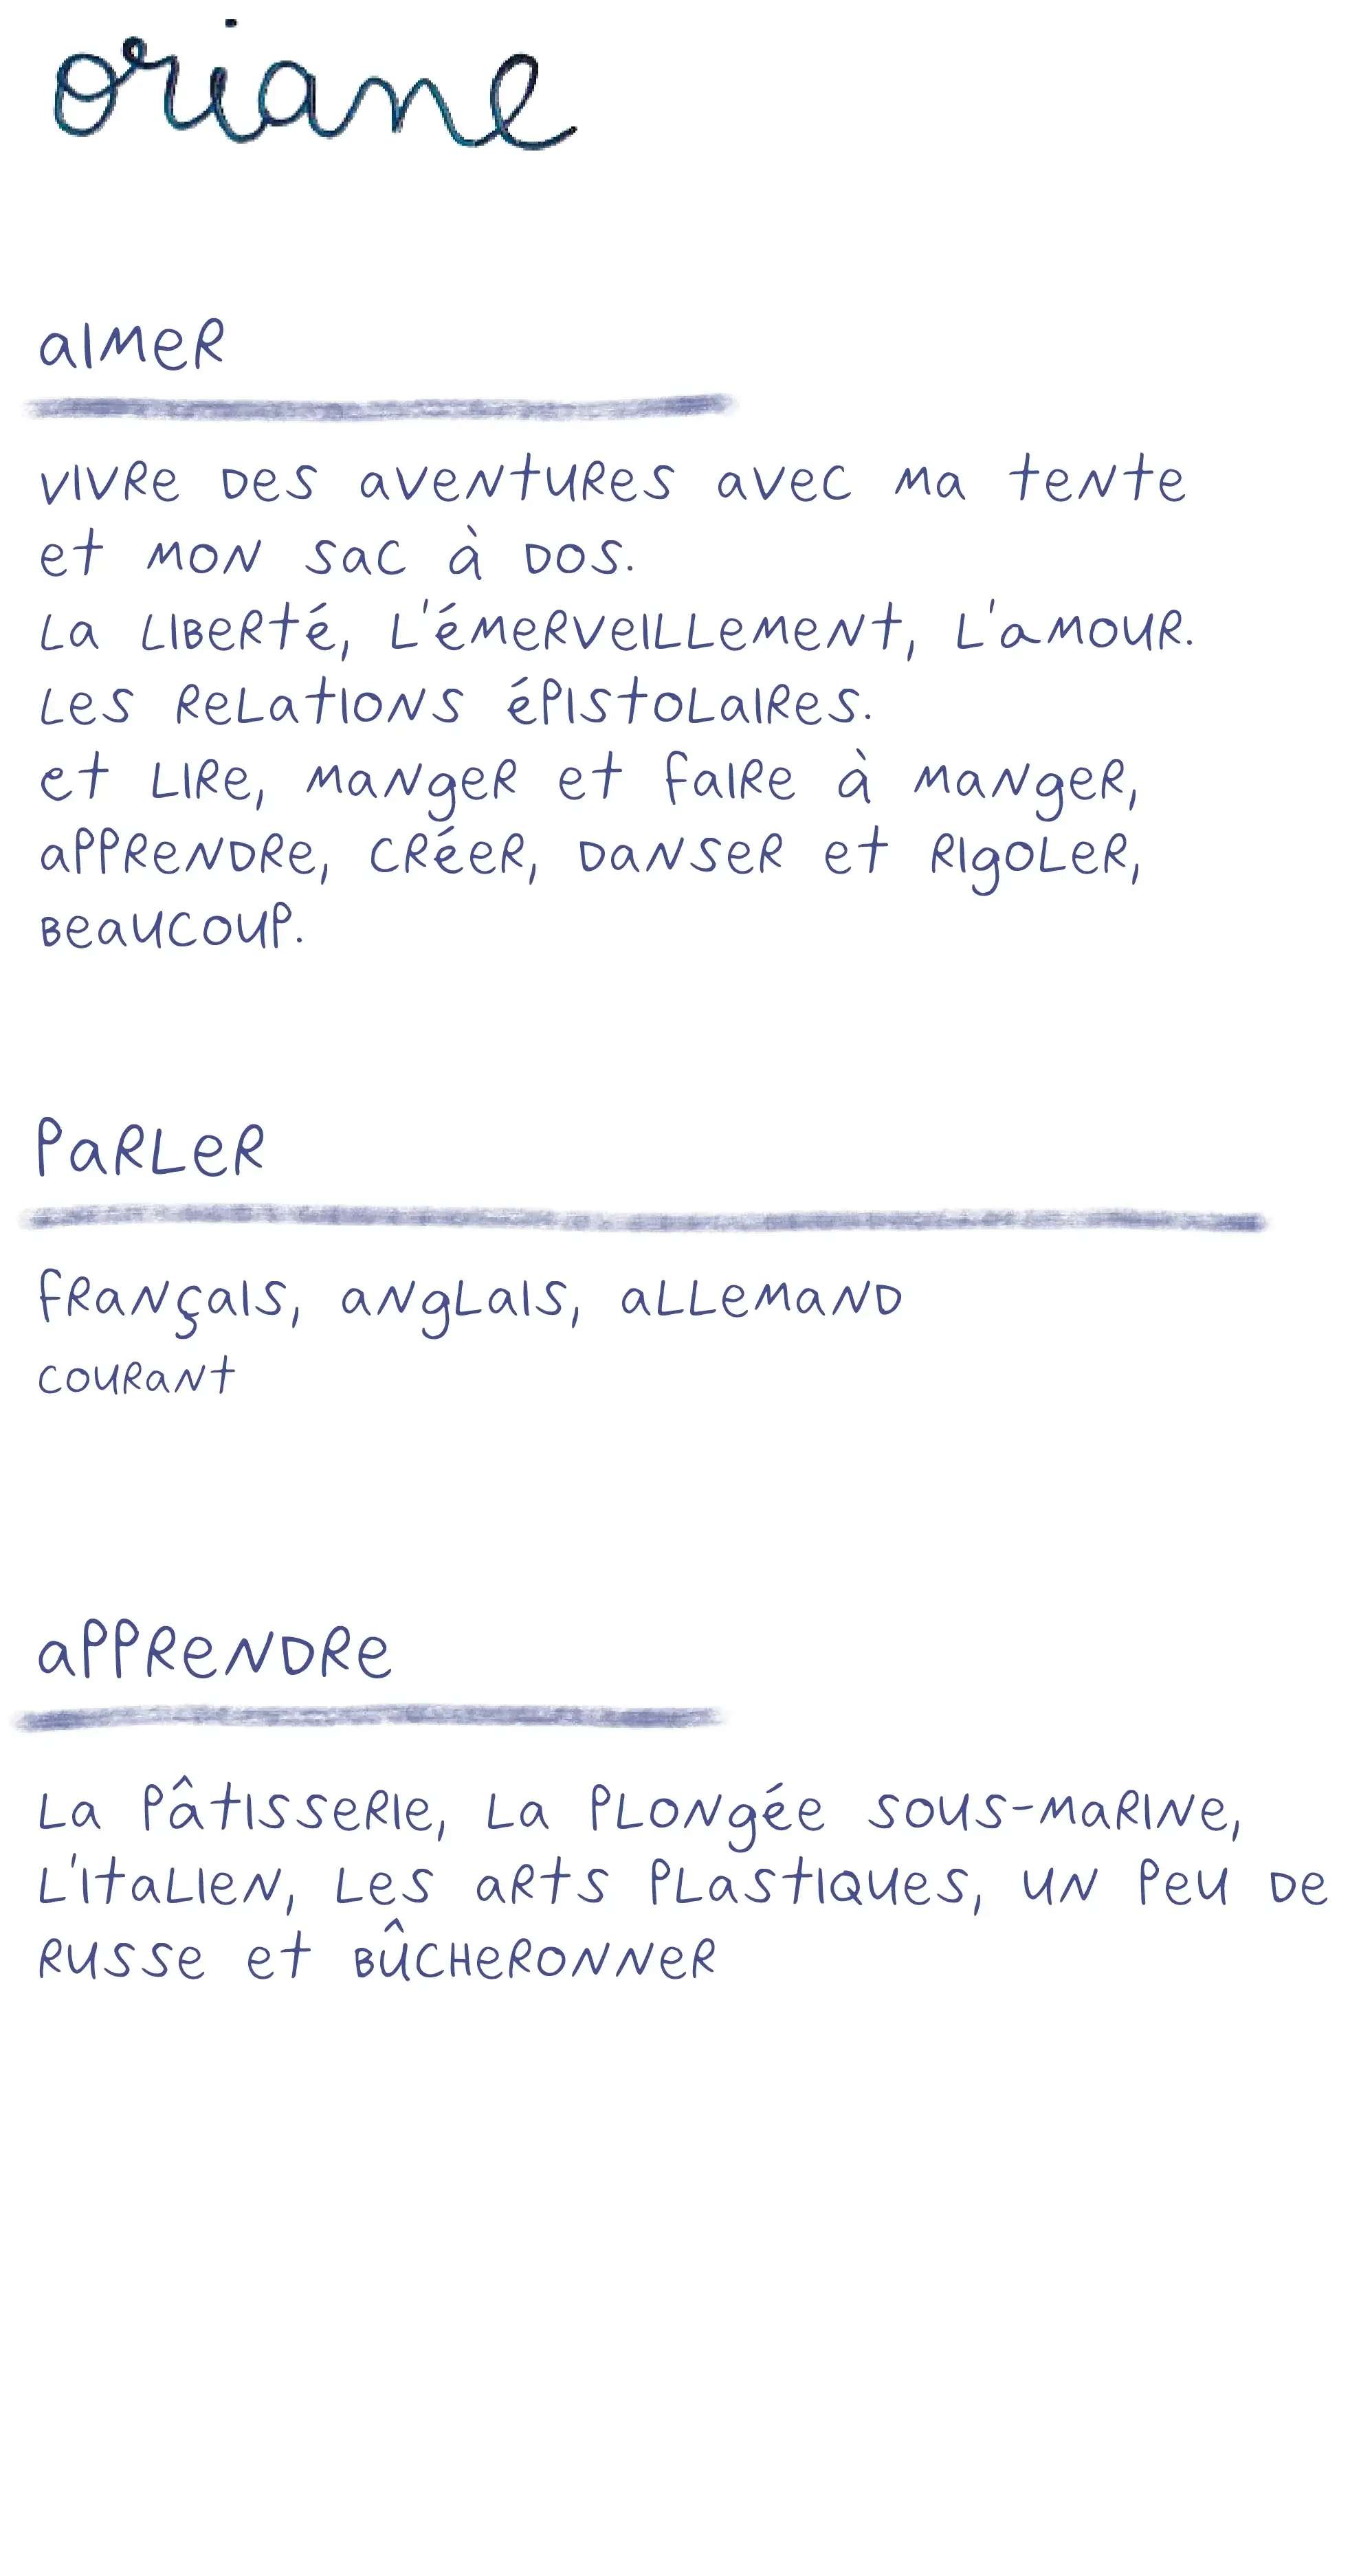 oriane
aimer
vivre des aventures avec ma tente
et mon sac à dos.
la liberté, l'émerveillement, l'amour.
les relations épistolaires.
et lire, manger et faire à manger,
apprendre, créer, danser et rigoler,
beaucoup.
parler
français, anglais, allemand
courant
apprendre
la pâtisserie, la plongée sous-marine,
l'italien, les arts plastiques, un peu de
russe et bûcheronner